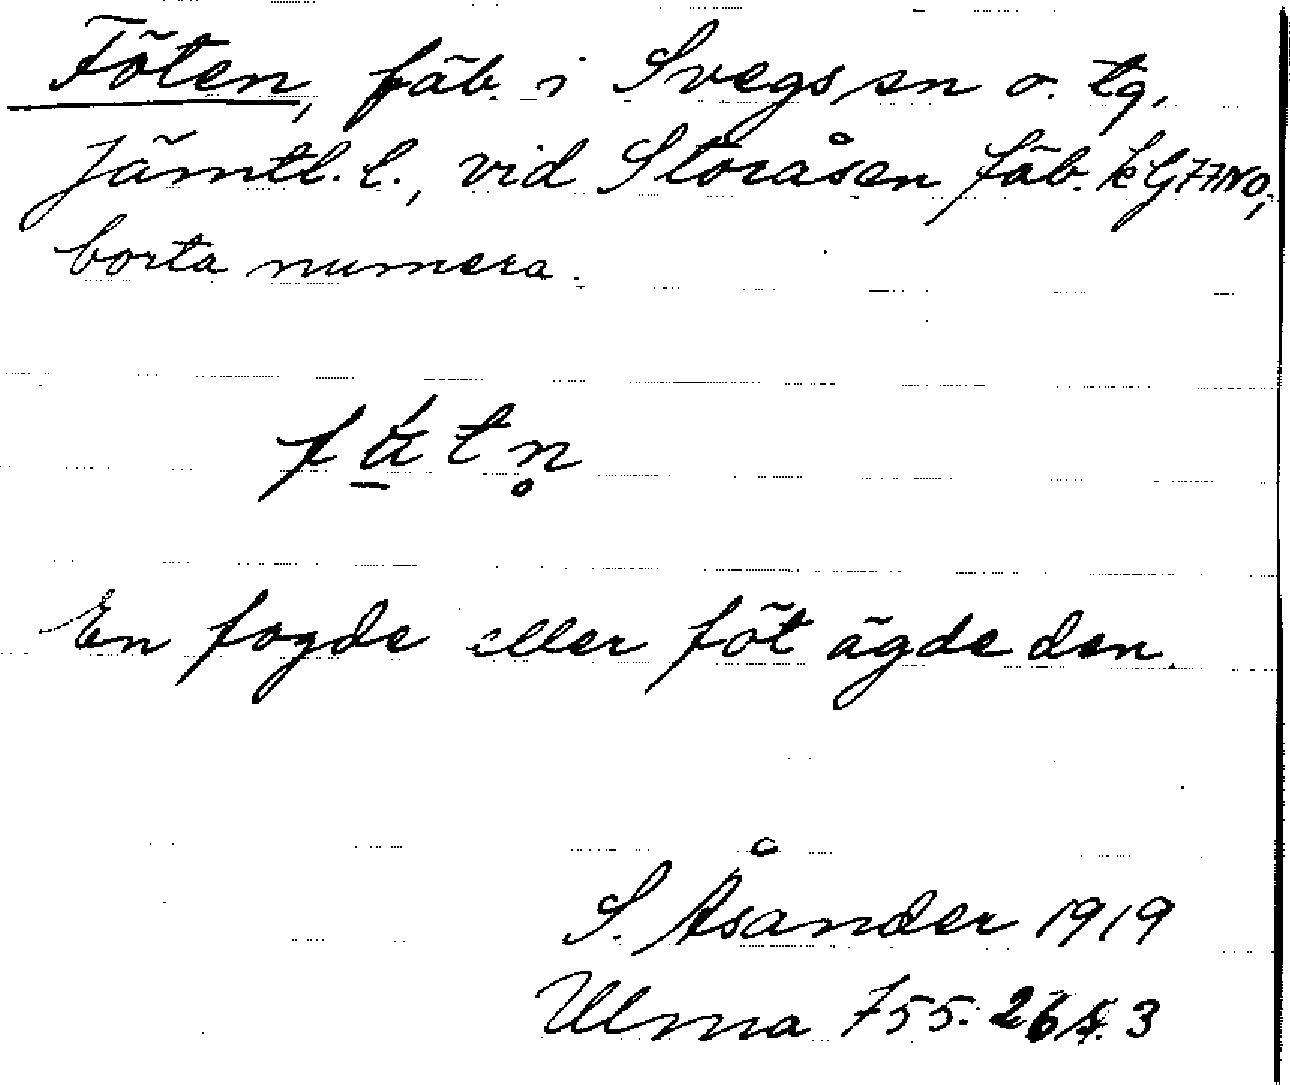 Föten, fäb. i Svegs sn o. tg,
Jämtl. l., vid Storåsen fäb. kG77NO,
borta numera.
En fogde eller föt ägde den.
S. Åsander 1919
Ulma 755.